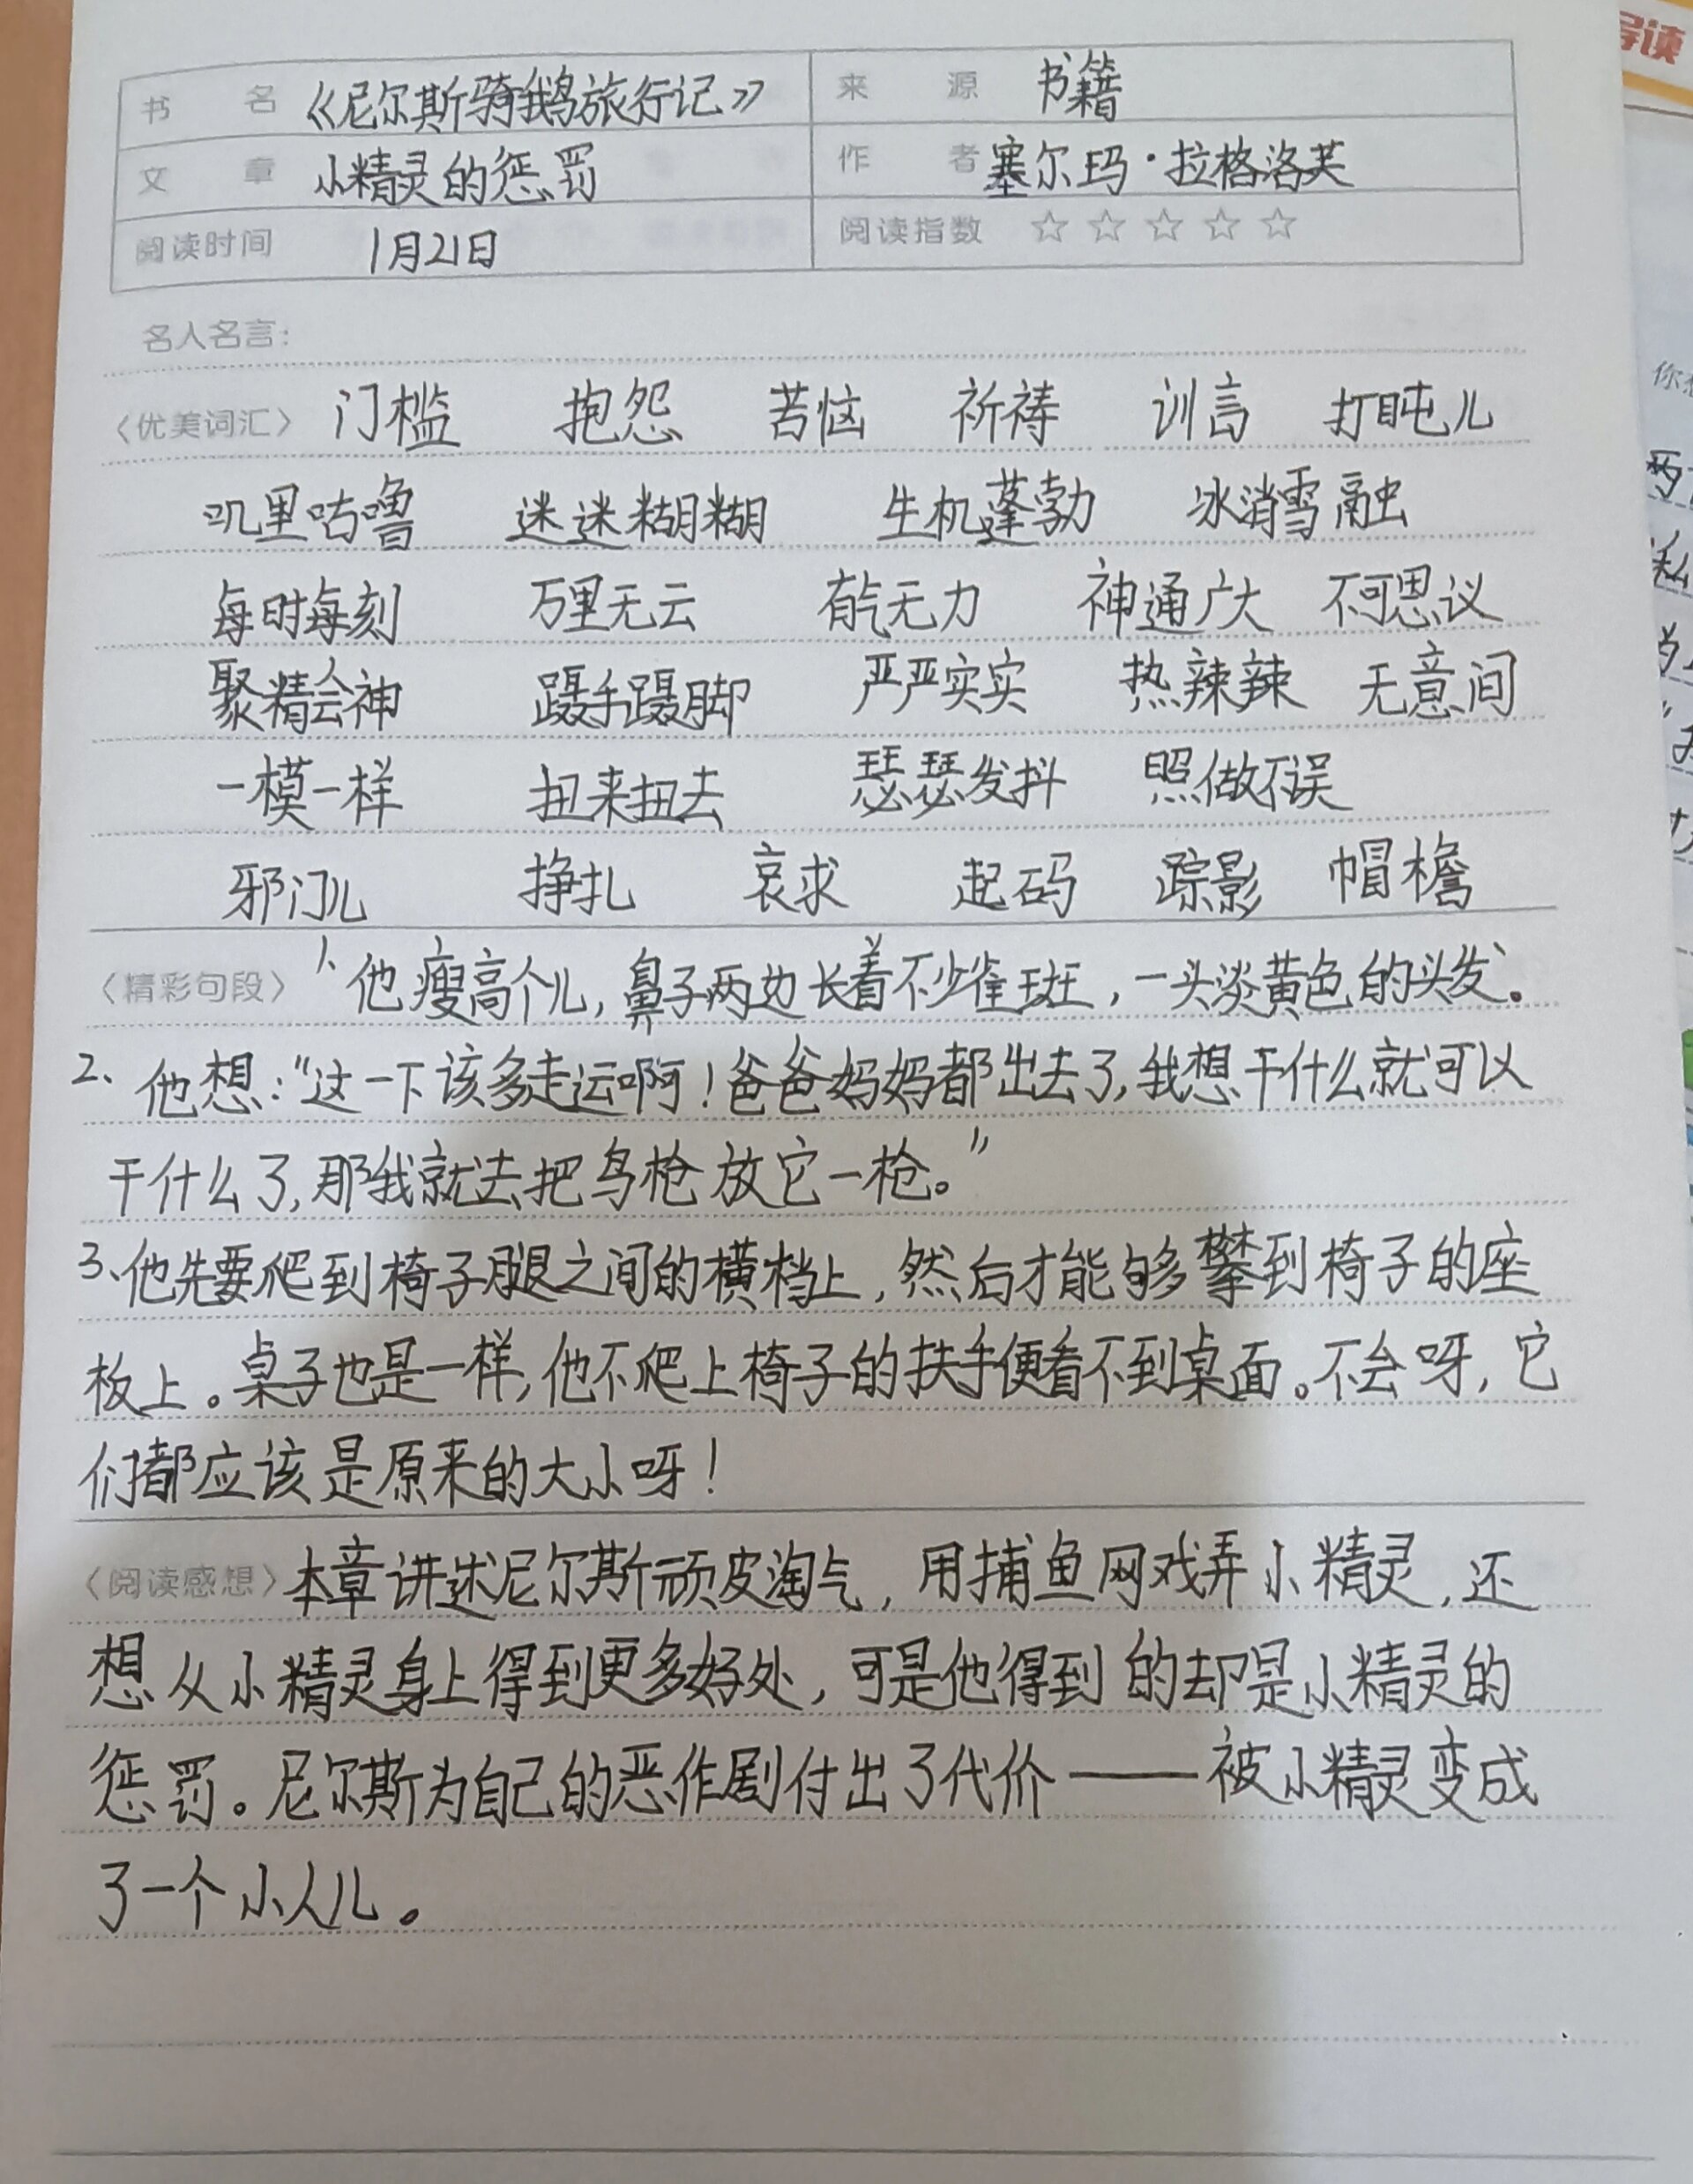 导读
书名 《尼尔斯骑鹅旅行记》 来源 书籍
文章 小精灵的惩罚 作者 塞尔玛·拉格洛芙
阅读时间 1月21日 阅读指数 ☆☆☆☆☆
名人名言:
〈优美词汇〉 门槛 抱怨 苦恼 祈祷 训言 打盹儿
叽里咕噜 迷迷糊糊 生机蓬勃 冰消雪融
每时每刻 万里无云 有气无力 神通广大 不可思议
聚精会神 蹑手蹑脚 严严实实 热辣辣 无意间
一模一样 扭来扭去 瑟瑟发抖 照做不误
邪门儿 挣扎 哀求 起码 踪影 帽檐
〈精彩句段〉 1、他瘦高个儿,鼻子两边长着不少雀斑,一头淡黄色的头发。
2、他想:“这一下该多走运啊!爸爸妈妈都出去了,我想干什么就可以
干什么了,那我就去把鸟枪放它一枪。”
3、他先要爬到椅子腿之间的横档上,然后才能够攀到椅子的座
板上。桌子也是一样,他不爬上椅子的扶手便看不到桌面。不会呀,它
们都应该是原来的大小呀!
〈阅读感想〉本章讲述尼尔斯顽皮淘气,用捕鱼网戏弄小精灵,还
想从小精灵身上得到更多好处,可是他得到的却是小精灵的
惩罚。尼尔斯为自己的恶作剧付出了代价——被小精灵变成
了一个小人儿。